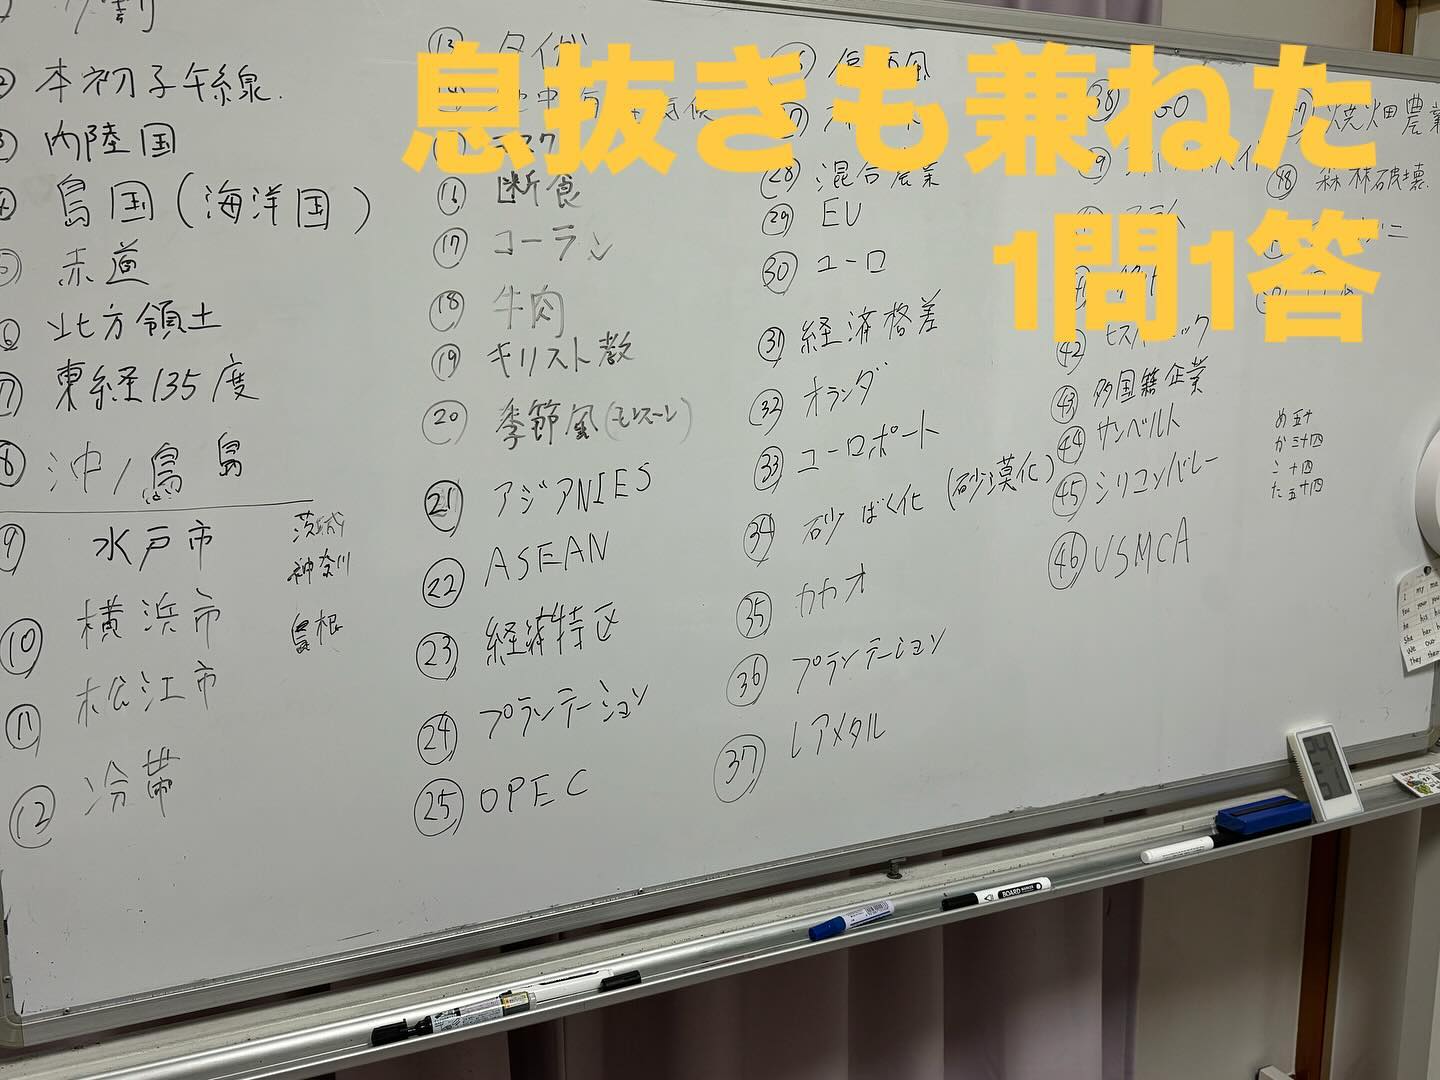 息抜きも兼ねた
1問1答
② 本初子午線
③ 内陸国
④ 島国(海洋国)
⑤ 赤道
⑥ 北方領土
⑦ 東経135度
⑧ 沖ノ鳥島
⑨ 水戸市 茨城
神奈川
⑩ 横浜市
島根
⑪ 松江市
⑫ 冷帯
⑬ タイガ
⑯ 断食
⑰ コーラン
⑱ 牛肉
⑲ キリスト教
⑳ 季節風(モンスーン)
㉑ アジアNIES
㉒ ASEAN
㉓ 経済特区
㉔ プランテーション
㉕ OPEC
㉘ 混合農業
㉙ EU
㉚ ユーロ
㉛ 経済格差
㉜ オランダ
㉝ ユーロポート
㉞ 砂ばく化(砂漠化)
㉟ カカオ
㊱ プランテーション
㊲ レアメタル
㊳
㊷ ヒスパニック
㊸ 多国籍企業
㊹ サンベルト
㊺ シリコンバレー
㊻ USMCA
焼畑農業
㊽ 森林破壊
め五十
か三十四
こ十四
た五十四